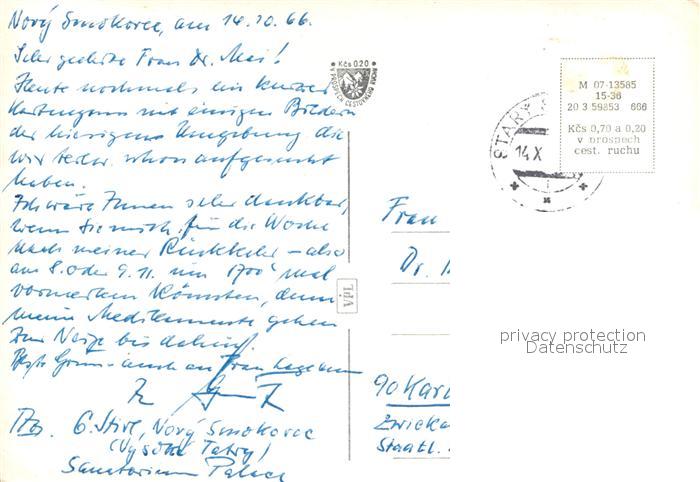 Nový Smokovec, am 14.10.66.
Sehr geehrte Frau Dr. Mai!
Heute nochmals ein kurzer
Kartengruss mit einigen Bildern
der hiesigen Umgebung die
wir bisher schon aufgesucht
haben.
Ich wäre Ihnen sehr dankbar,
wenn Sie mich für die Woche
nach meiner Rückkehr – also
am 8. oder 9. 11. um 17⁰⁰ mal
vormerken könnten, denn
meine Medikamente gehen
zur Neige bis dahin.
Beste Grüsse auch an Frau
G. Stirl, Nový Smokovec
(Vysoké Tatry)
Sanatorium Palace
Kčs 0.20
V PROSPĚCH CESTOVNÍHO RUCHU
STARÝ
14.X
M 07-13585
15-36
20 3 59853 666
Kčs 0,70 a 0,20
v prospech
cest. ruchu
VPL
Frau
Dr.
90 Karl
Zwicka
Staatl.
privacy protection
Datenschutz